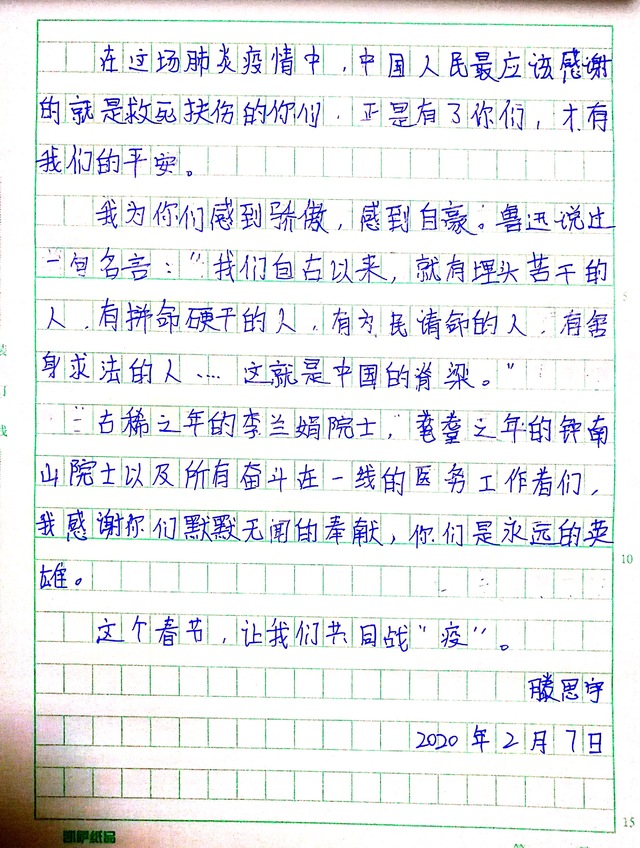 在这场肺炎疫情中，中国人民最应该感谢
的就是救死扶伤的你们，正是有了你们，才有
我们的平安。
我为你们感到骄傲，感到自豪。鲁迅说过
一句名言：“我们自古以来，就有埋头苦干的
人，有拼命硬干的人，有为民请命的人，有舍
身求法的人……这就是中国的脊梁。”
古稀之年的李兰娟院士，耄耋之年的钟南
山院士以及所有奋斗在一线的医务工作者们，
我感谢你们默默无闻的奉献，你们是永远的英
雄。
这个春节，让我们共同战“疫”。
滕思宇
2020年2月7日
5
10
15
凯萨纸品
装
订
线